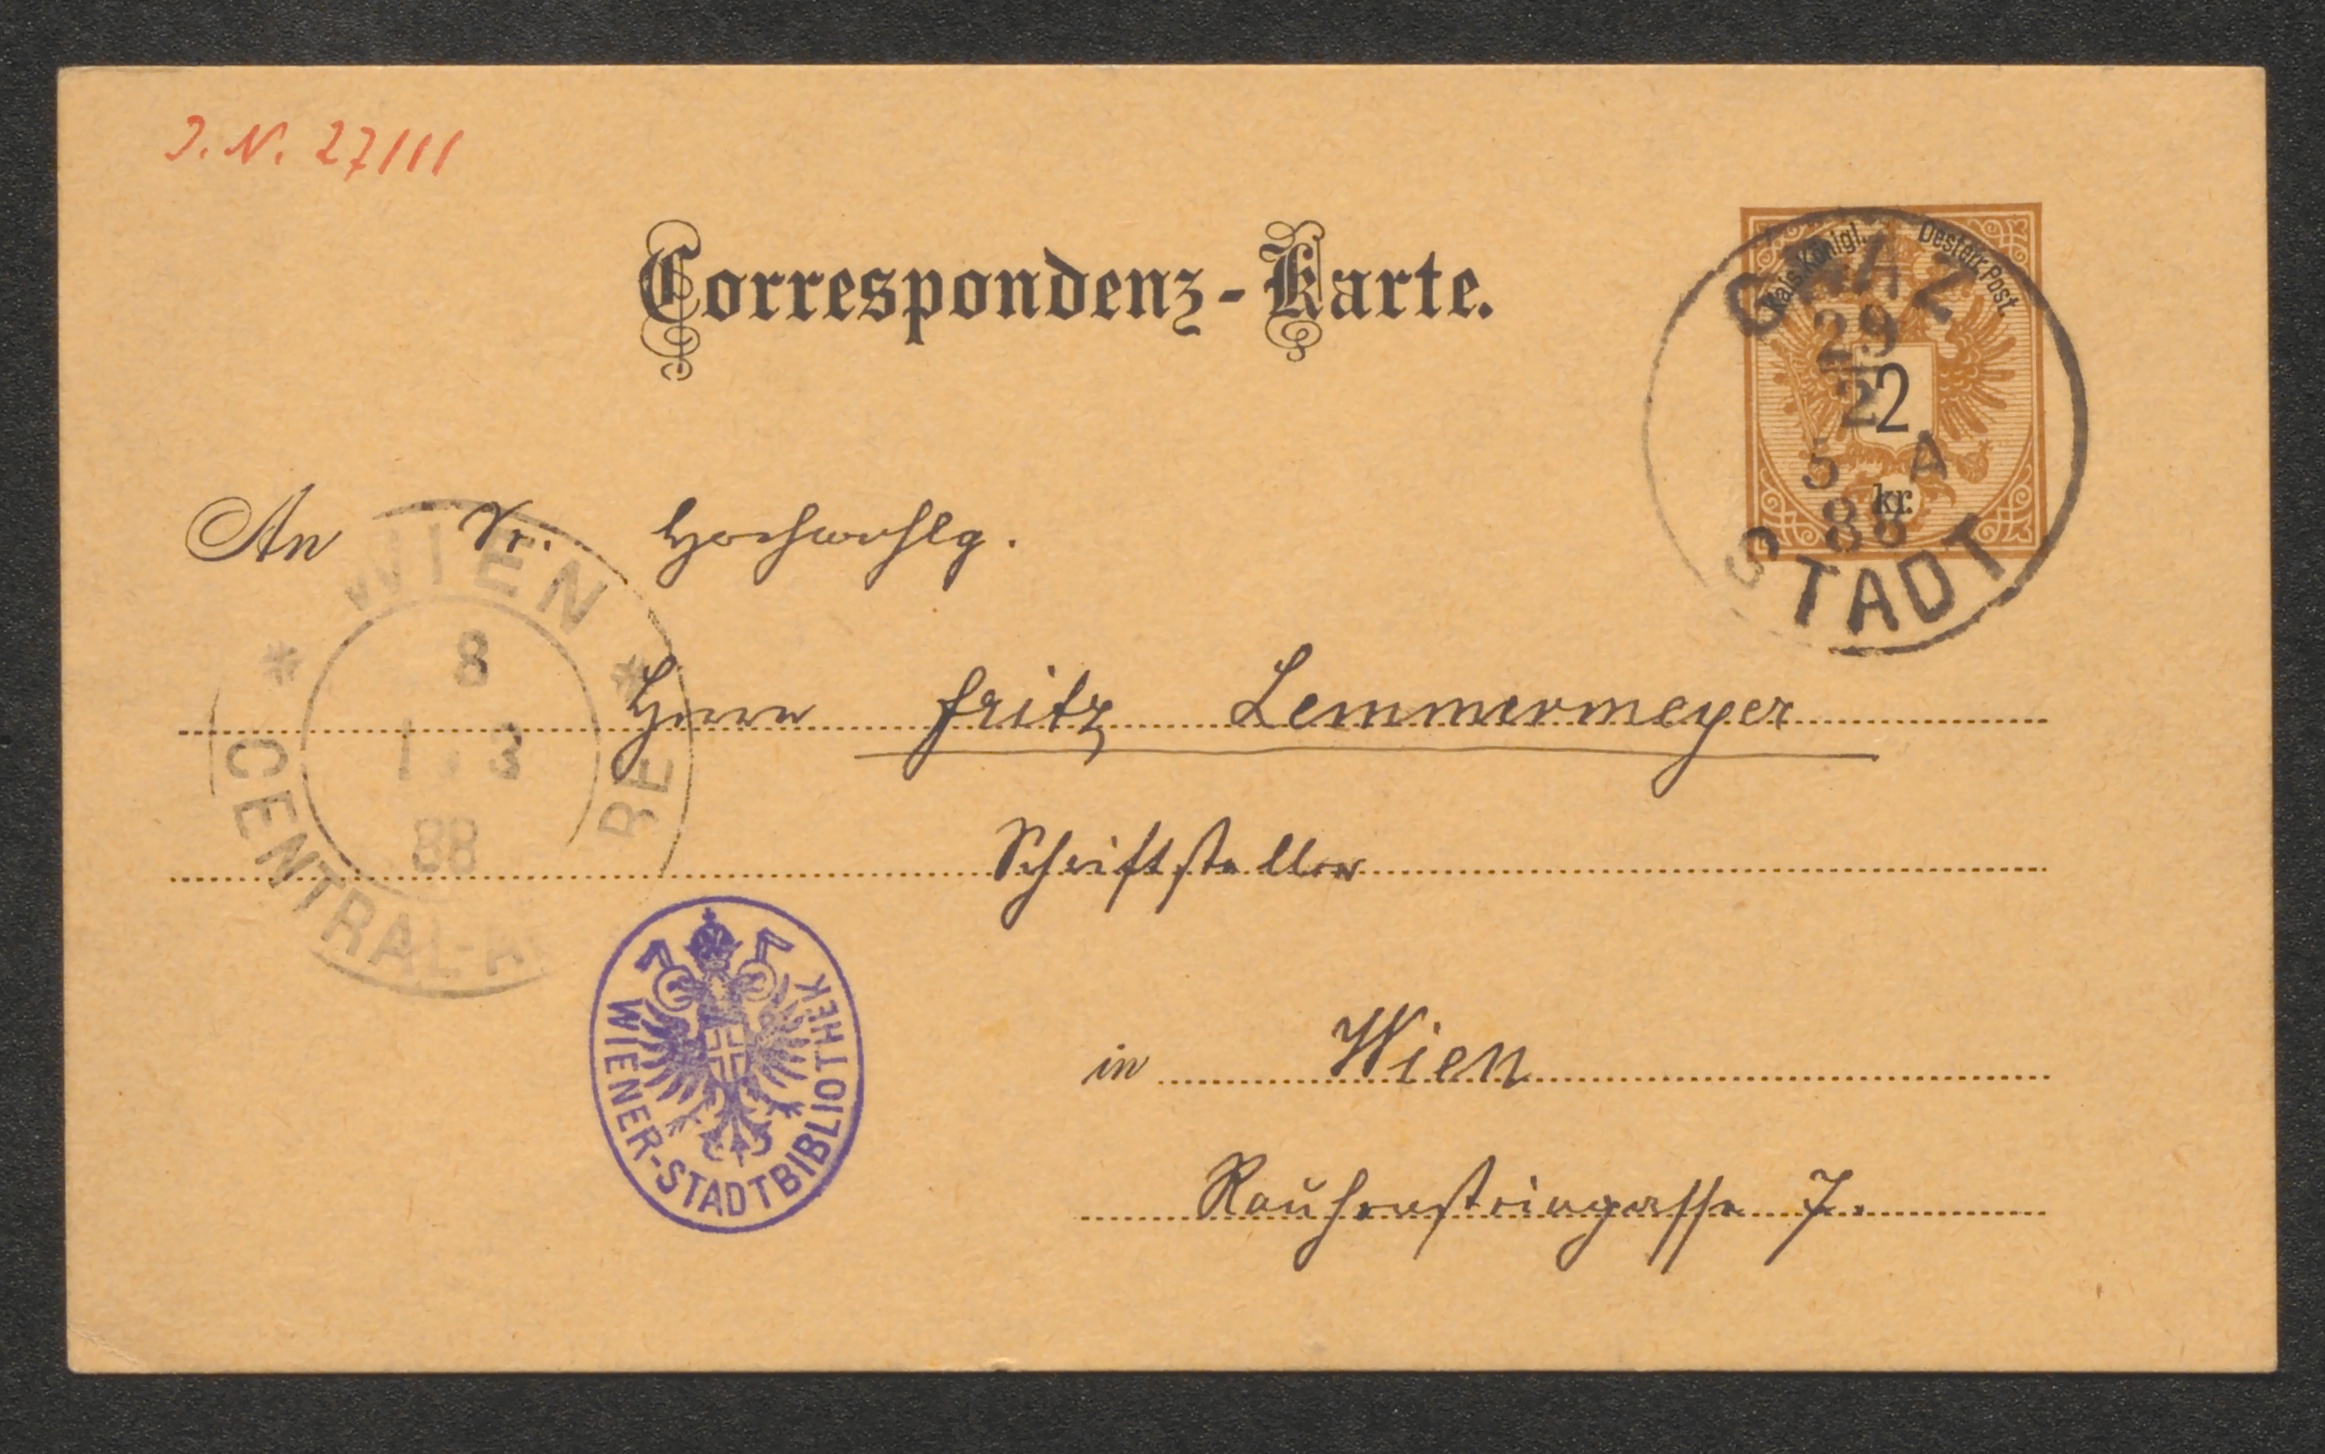 J. N. 27111
Correspondenz-Karte.
Kais. Königl. Oesterr. Post.
2
kr.
GRAZ
29
2
5 A
88
STADT
An Sr. Hochwohlg.
WIEN
8
1. 3
88
CENTRAL-
Herrn Fritz Lemmermeyer
Schriftsteller
WIENER-STADTBIBLIOTHEK
in Wien
Rauhensteingasse 7.